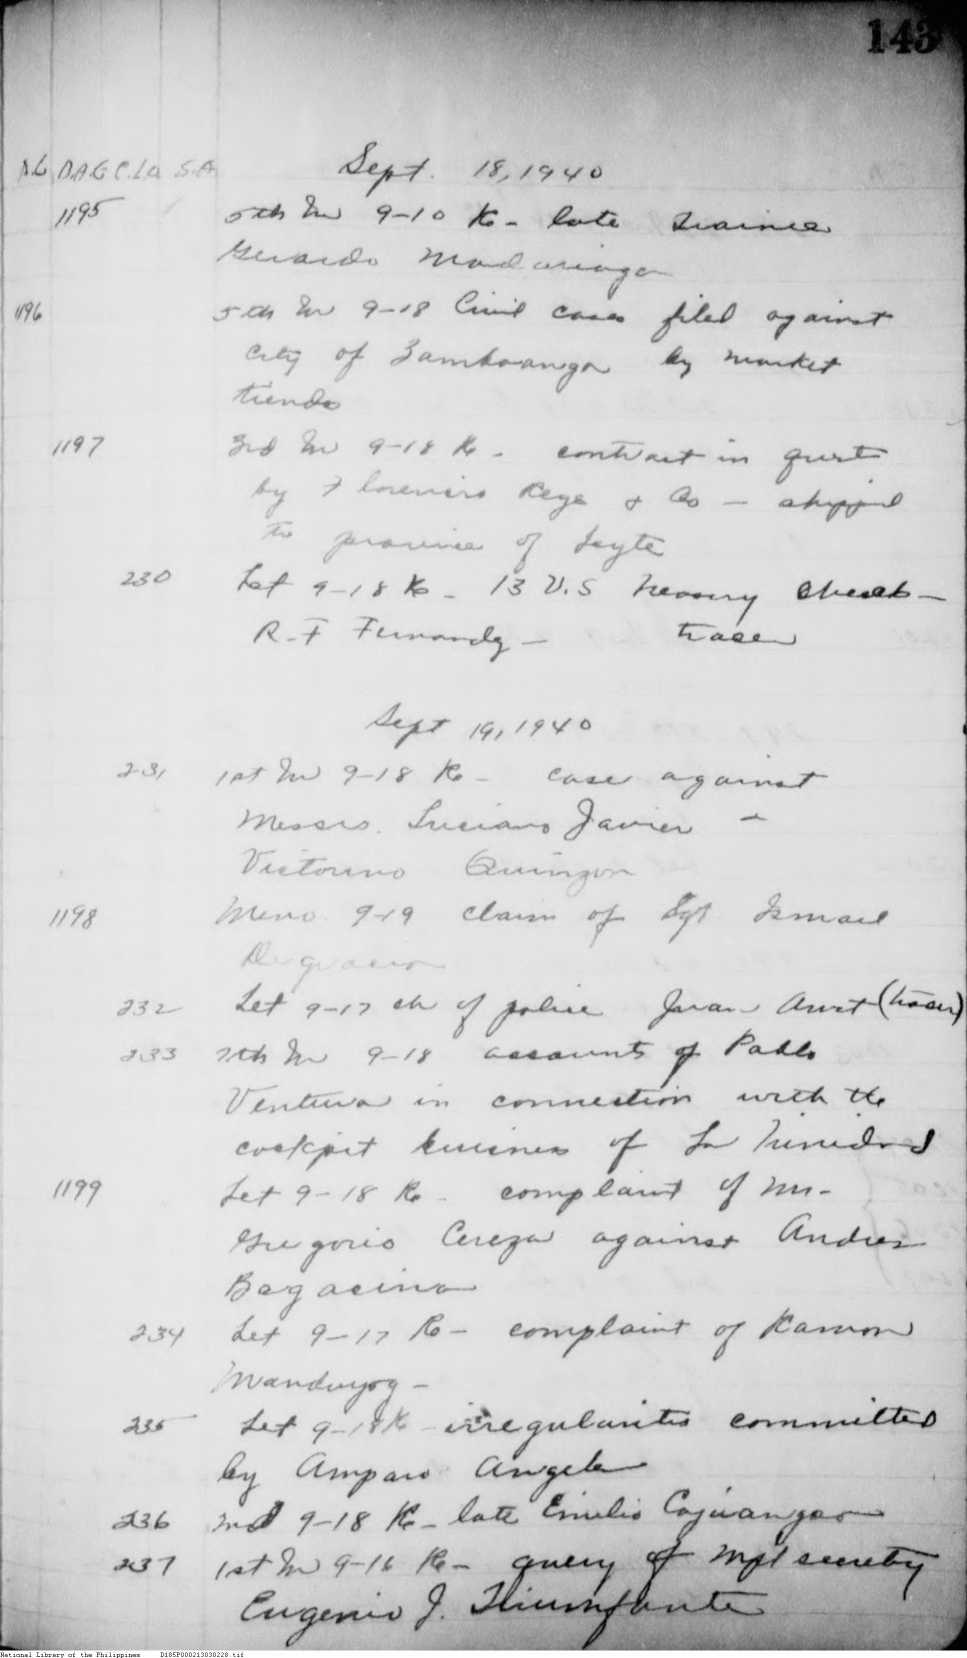 143
A.G D.A.G C.LO. S.A Sept. 18, 1940
1195 5th In 9-10 Re - late trainee
Gerardo Madariaga
1196 5th In 9-18 Civil cases filed against
City of Zamboanga by market
tienda
1197 3rd In 9-18 Re - contract in
by Florencio Reyes & Co - shipped
the province of Leyte
230 Let 9-18 Re - 13 U.S Treasury Checks -
R. F Fernandez - tracer
Sept 19, 1940
231 1st In 9-18 Re - case against
Messrs. Luciano Javier
Victorino Quinzon
1198 Memo 9-19 claim of Sgt Ismael
Degracia
232 Let 9-17 ch of police Juan (tracer)
233 7th In 9-18 accounts of Pablo
Ventura in connection with the
cockpit business of La Trinidad
1199 Let 9-18 Re - complaint of Mr.
Gregorio Cereza against Andres
Bagacina
234 Let 9-17 Re - complaint of Ramon
Manduyog -
235 Let 9-18 Re - irregularities committed
by Amparo Angela
236 2nd 9-18 Re - late Emilio Cojuangco
237 1st In 9-16 Re - query of Mpl secretary
Eugenio J. Triumfante
National Library of the Philippines D185P000213030228.tif